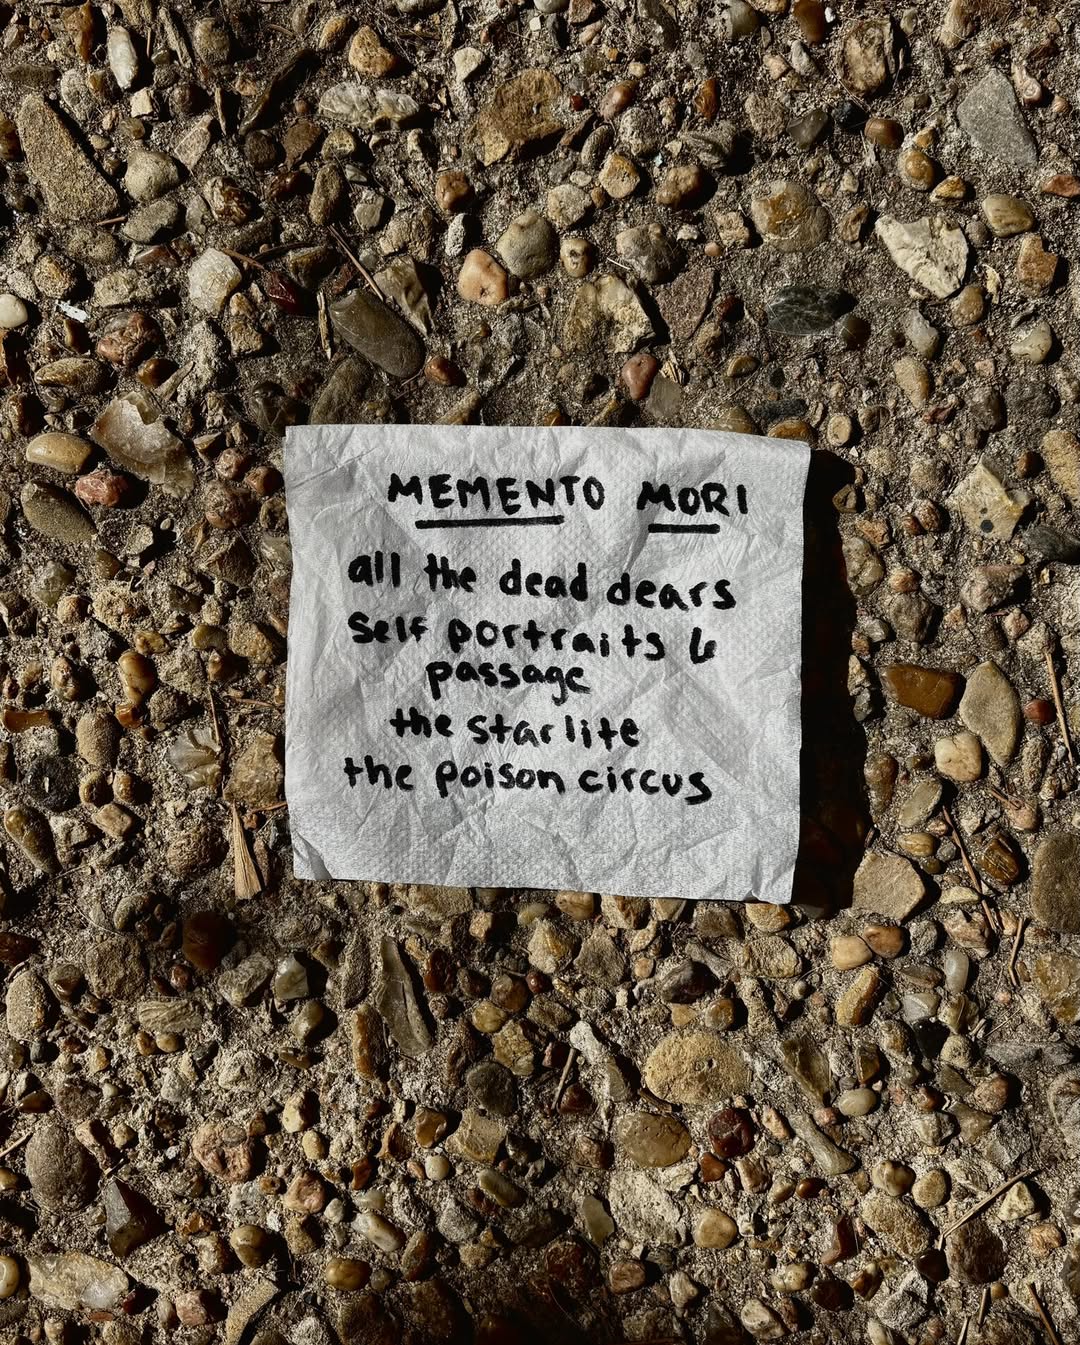 MEMENTO MORI
all the dead dears
Self portraits &
passage
the starlite
the poison circus